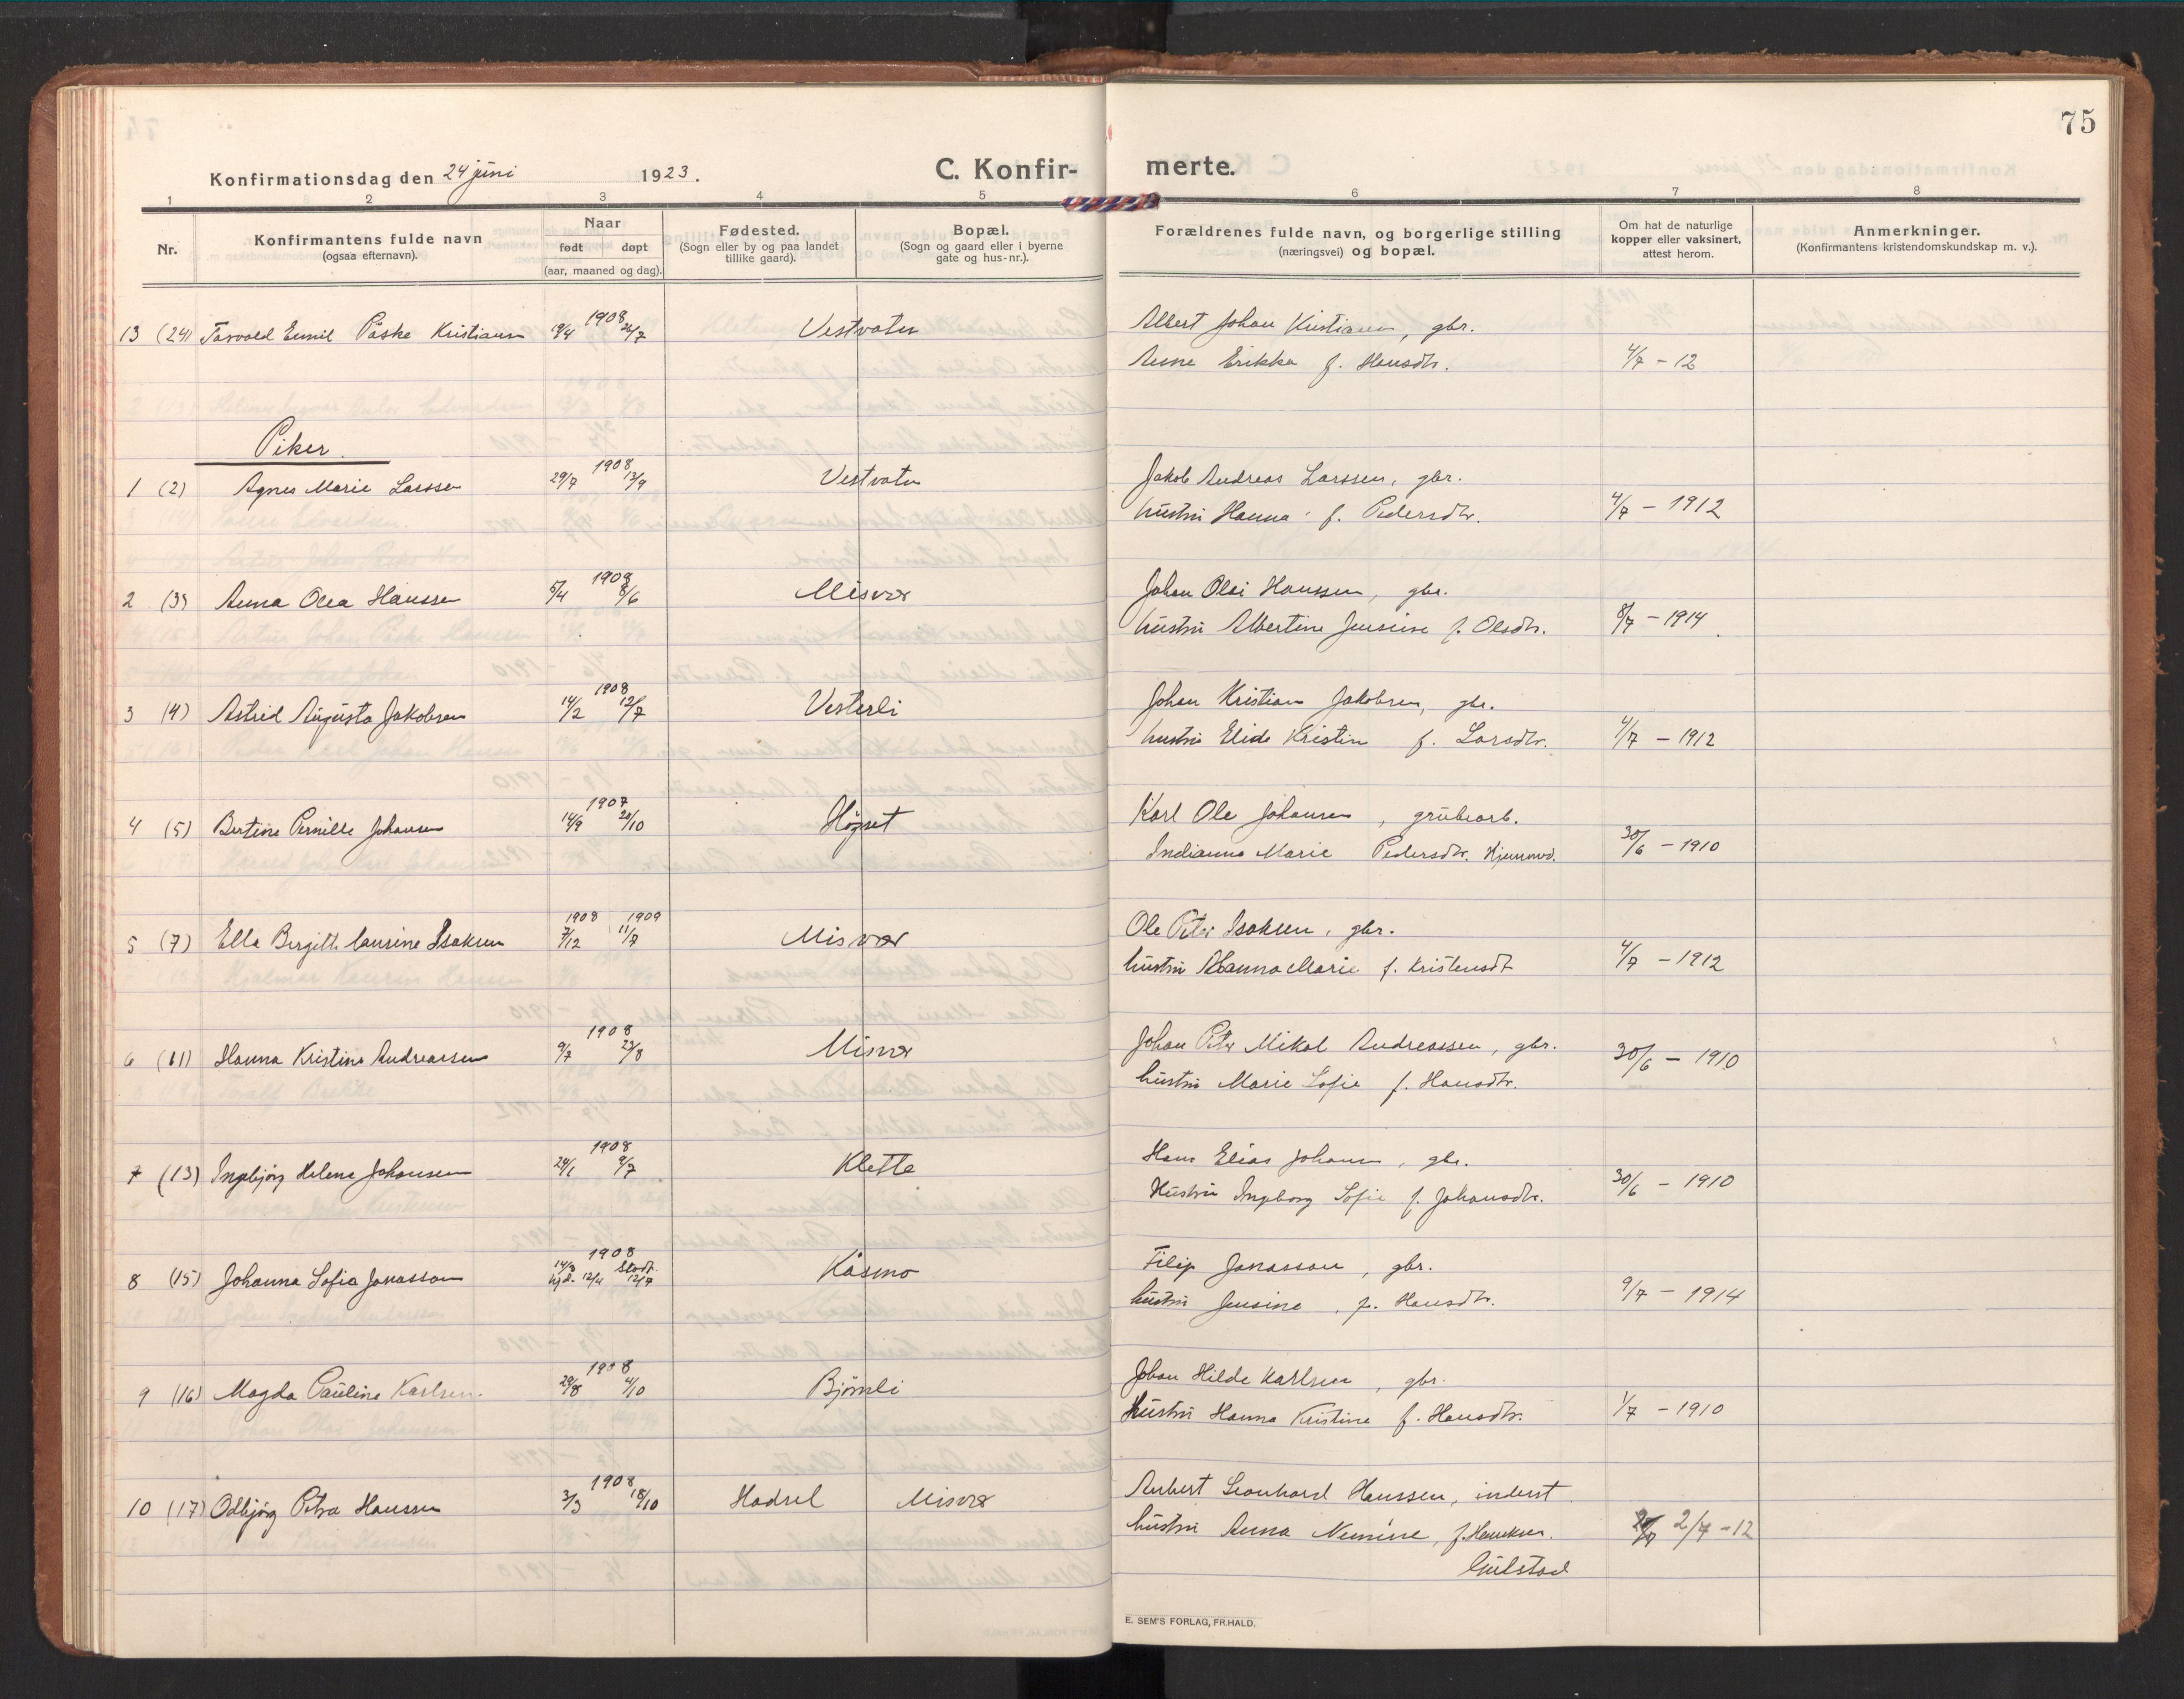 75
Konfirmationsdag den 24 juni 1923. C. Konfir- merte.
1 2 3 4 5 6 7 8
Nr. Konfirmantens fulde navn (ogsaa efternavn). Naar født døpt (aar, maaned og dag). Fødested. (Sogn eller by og paa landet tillike gaard). Bopæl. (Sogn og gaard eller i byerne gate og hus-nr.). Forældrenes fulde navn, og borgerlige stilling (næringsvei) og bopæl. Om hat de naturlige kopper eller vaksinert, attest herom. Anmerkninger. (Konfirmantens kristendomskundskap m. v.).
1908
13 (24) Torvald Ennil Påske Kristiansen 19/4 26/7 Vestvatn Albert Johan Kristiansen, gbr.
Anne Erikka f. Hansdtr. 4/7 - 12
Piker.
1908
1 (2) Agnes Marie Larssen 29/7 13/9 Vestvatn Jakob Andreas Larssen, gbr.
hustru Hanna f. Pedersdtr. 4/7 - 1912
1908
2 (3) Anna Olea Hanssen 5/4 8/6 Misvær Johan Olai Hanssen, gbr.
hustru Albertine Jensine f. Olsdtr. 8/7 - 1914
1908
3 (4) Astrid Augusta Jakobsen 14/2 12/7 Vesterli Johan Kristian Jakobsen, gbr.
hustru Elide Kristin f. Larsdtr. 4/7 - 1912
1907
4 (5) Bertine Pernille Johansen 14/9 20/10 Høgset Karl Ole Johansen, grubearb.
Indianna Marie Pedersdtr. 30/6 - 1910
1908 1909
5 (7) Ella Bergitte Laurine Isaksen 7/12 11/7 Misvær Ole Peter Isaksen, gbr.
hustru Hanna Marie f. Kristensdt 4/7 - 1912
1908
6 (11) Hanna Kristine Andreassen 9/7 23/8 Misvær Johan Peter Mikal Andreassen, gbr.
hustru Marie Sofie f. Hansdtr. 30/6 - 1910
1908
7 (13) Ingebjørg Helene Johansen 24/1 9/7 Kletta Hans Elias Johansen, gbr.
Hustru Ingeborg Sofie f. Johansdtr. 30/6 - 1910
1908
8 (15) Johanna Sofia Jonasson 14/3 hjd. 12/4 Stadf. 12/7 Kåsmo Filip Jonasson, gbr.
hustru Jensine, f. Hansdtr. 9/7 - 1914
1908
9 (16) Magda Pauline Karlsen 29/8 4/10 Bjørnli Johan Hilde Karlsen, gbr.
Hustru Hanna Kristine f. Hansdtr. 1/7 - 1910
1908
10 (17) Odbjørg Petra Hanssen 3/3 18/10 Hadsel Misvær Anbert Leonhard Hanssen, inderst
hustru Anna Numine, f. Henriksen. 2/7 - 12
Gulstad
E. SEM'S FORLAG, FR.HALD.